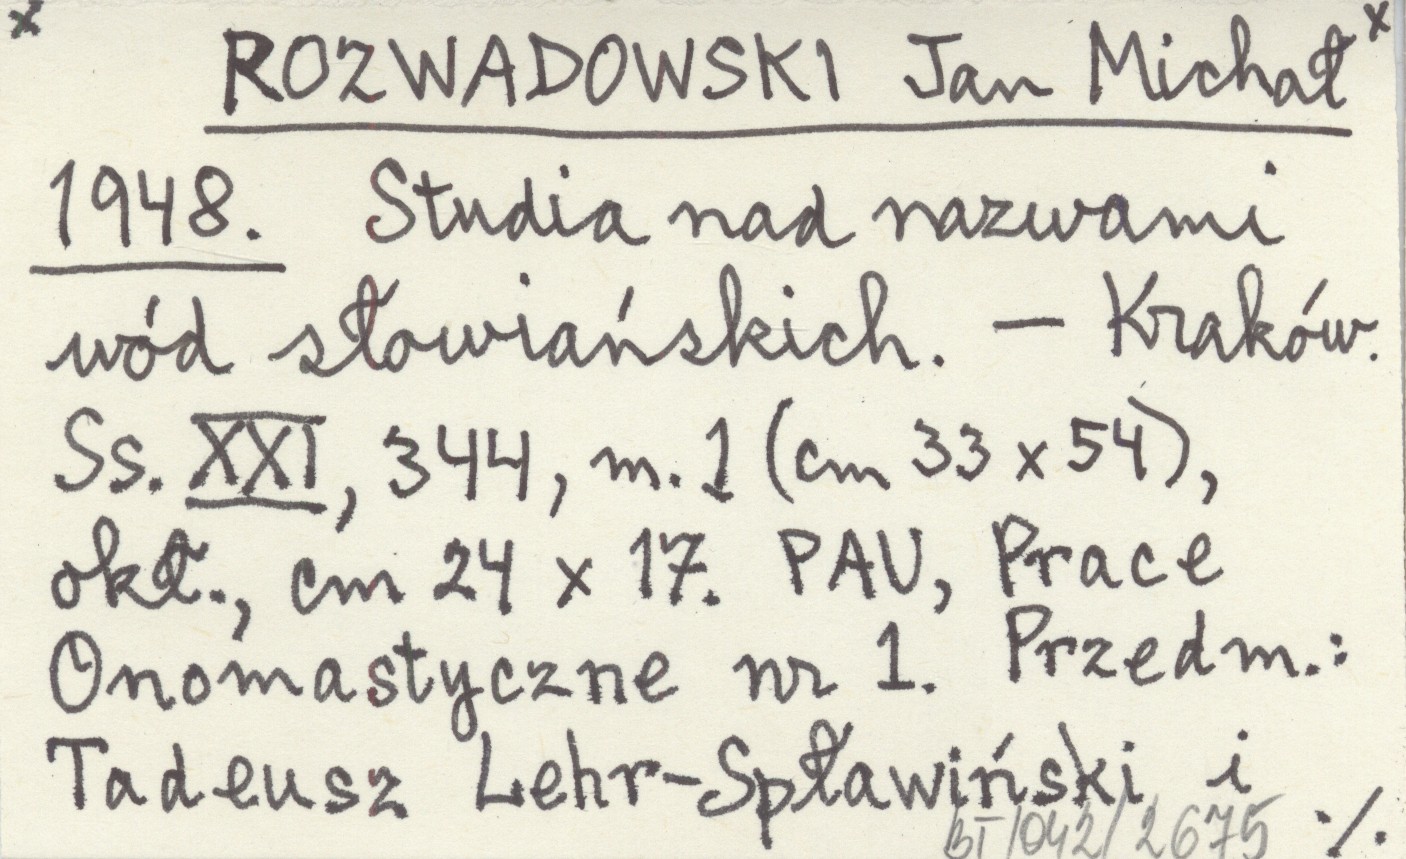 x ROZWADOWSKI Jan Michał x
1948. Studia nad nazwami
wód słowiańskich. – Kraków.
Ss. XXI, 344, m. 1 (cm 33 x 54),
okł., cm 24 x 17. PAU, Prace
Onomastyczne nr 1. Przedm.:
Tadeusz Lehr-Spławiński i
BI/042/2675 ./.